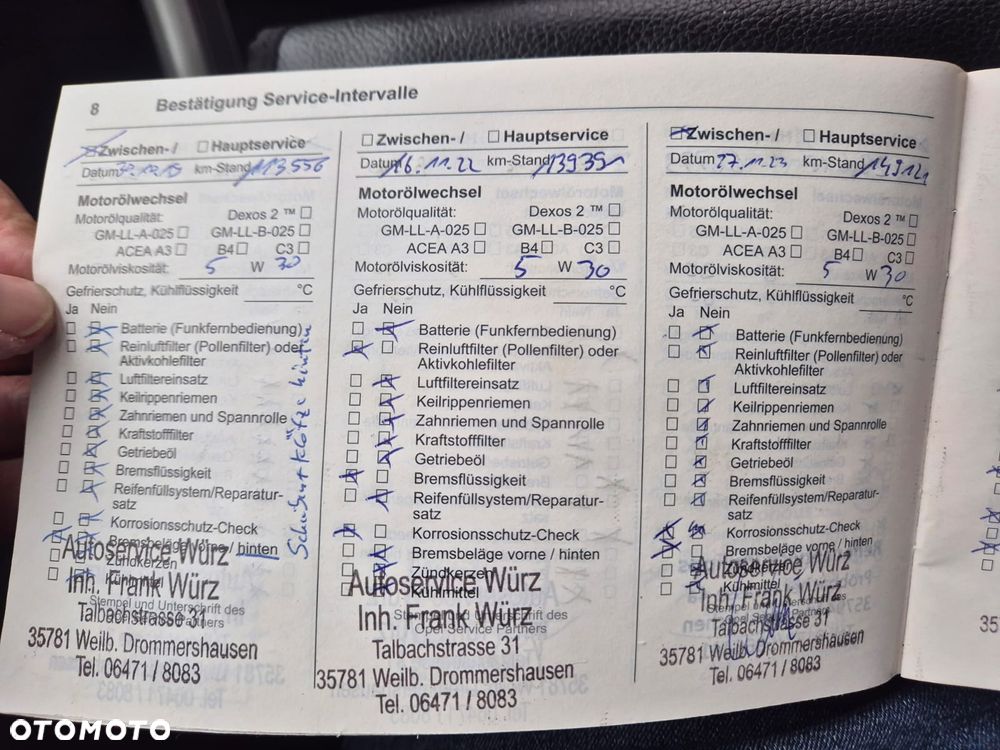 8 Bestätigung Service-Intervalle
☒ Zwischen- / ☐ Hauptservice
Datum km-Stand 113556
Motorölwechsel
Motorölqualität: Dexos 2 ™ ☐
GM-LL-A-025 ☐ GM-LL-B-025 ☐
ACEA A3 ☐ B4 ☐ C3 ☐
Motorölviskosität: 5 W 30
Gefrierschutz, Kühlflüssigkeit °C
Ja Nein
Batterie (Funkfernbedienung)
Reinluftfilter (Pollenfilter) oder
Aktivkohlefilter
Luftfiltereinsatz
Keilrippenriemen
Zahnriemen und Spannrolle
Kraftstofffilter
Getriebeöl
Bremsflüssigkeit
Reifenfüllsystem/Reparatur-
satz
Korrosionsschutz-Check
Bremsbeläge vorne / hinten
Zündkerzen
Kühlmittel
Stempel und Unterschrift des
Opel Service Partners
Autoservice Würz
Inh. Frank Würz
Talbachstrasse 31
35781 Weilb. Drommershausen
Tel. 06471 / 8083
hinten
☐ Zwischen- / ☐ Hauptservice
Datum 16.11.22 km-Stand 139391
Motorölwechsel
Motorölqualität: Dexos 2 ™ ☐
GM-LL-A-025 ☐ GM-LL-B-025 ☐
ACEA A3 ☐ B4 ☐ C3 ☐
Motorölviskosität: 5 W 30
Gefrierschutz, Kühlflüssigkeit °C
Ja Nein
Batterie (Funkfernbedienung)
Reinluftfilter (Pollenfilter) oder
Aktivkohlefilter
Luftfiltereinsatz
Keilrippenriemen
Zahnriemen und Spannrolle
Kraftstofffilter
Getriebeöl
Bremsflüssigkeit
Reifenfüllsystem/Reparatur-
satz
Korrosionsschutz-Check
Bremsbeläge vorne / hinten
Zündkerzen
Kühlmittel
Stempel und Unterschrift des
Opel Service Partners
Autoservice Würz
Inh. Frank Würz
Talbachstrasse 31
35781 Weilb. Drommershausen
Tel. 06471 / 8083
☒ Zwischen- / ☐ Hauptservice
Datum 27.11.23 km-Stand 149121
Motorölwechsel
Motorölqualität: Dexos 2 ™ ☐
GM-LL-A-025 ☐ GM-LL-B-025 ☐
ACEA A3 ☐ B4 ☐ C3 ☐
Motorölviskosität: 5 W 30
Gefrierschutz, Kühlflüssigkeit °C
Ja Nein
Batterie (Funkfernbedienung)
Reinluftfilter (Pollenfilter) oder
Aktivkohlefilter
Luftfiltereinsatz
Keilrippenriemen
Zahnriemen und Spannrolle
Kraftstofffilter
Getriebeöl
Bremsflüssigkeit
Reifenfüllsystem/Reparatur-
satz
Korrosionsschutz-Check
Bremsbeläge vorne / hinten
Zündkerzen
Kühlmittel
Stempel und Unterschrift des
Opel Service Partners
Autoservice Würz
Inh. Frank Würz
Talbachstrasse 31
35781 Weilb. Drommershausen
Tel. 06471 / 8083
35
OTOMOTO